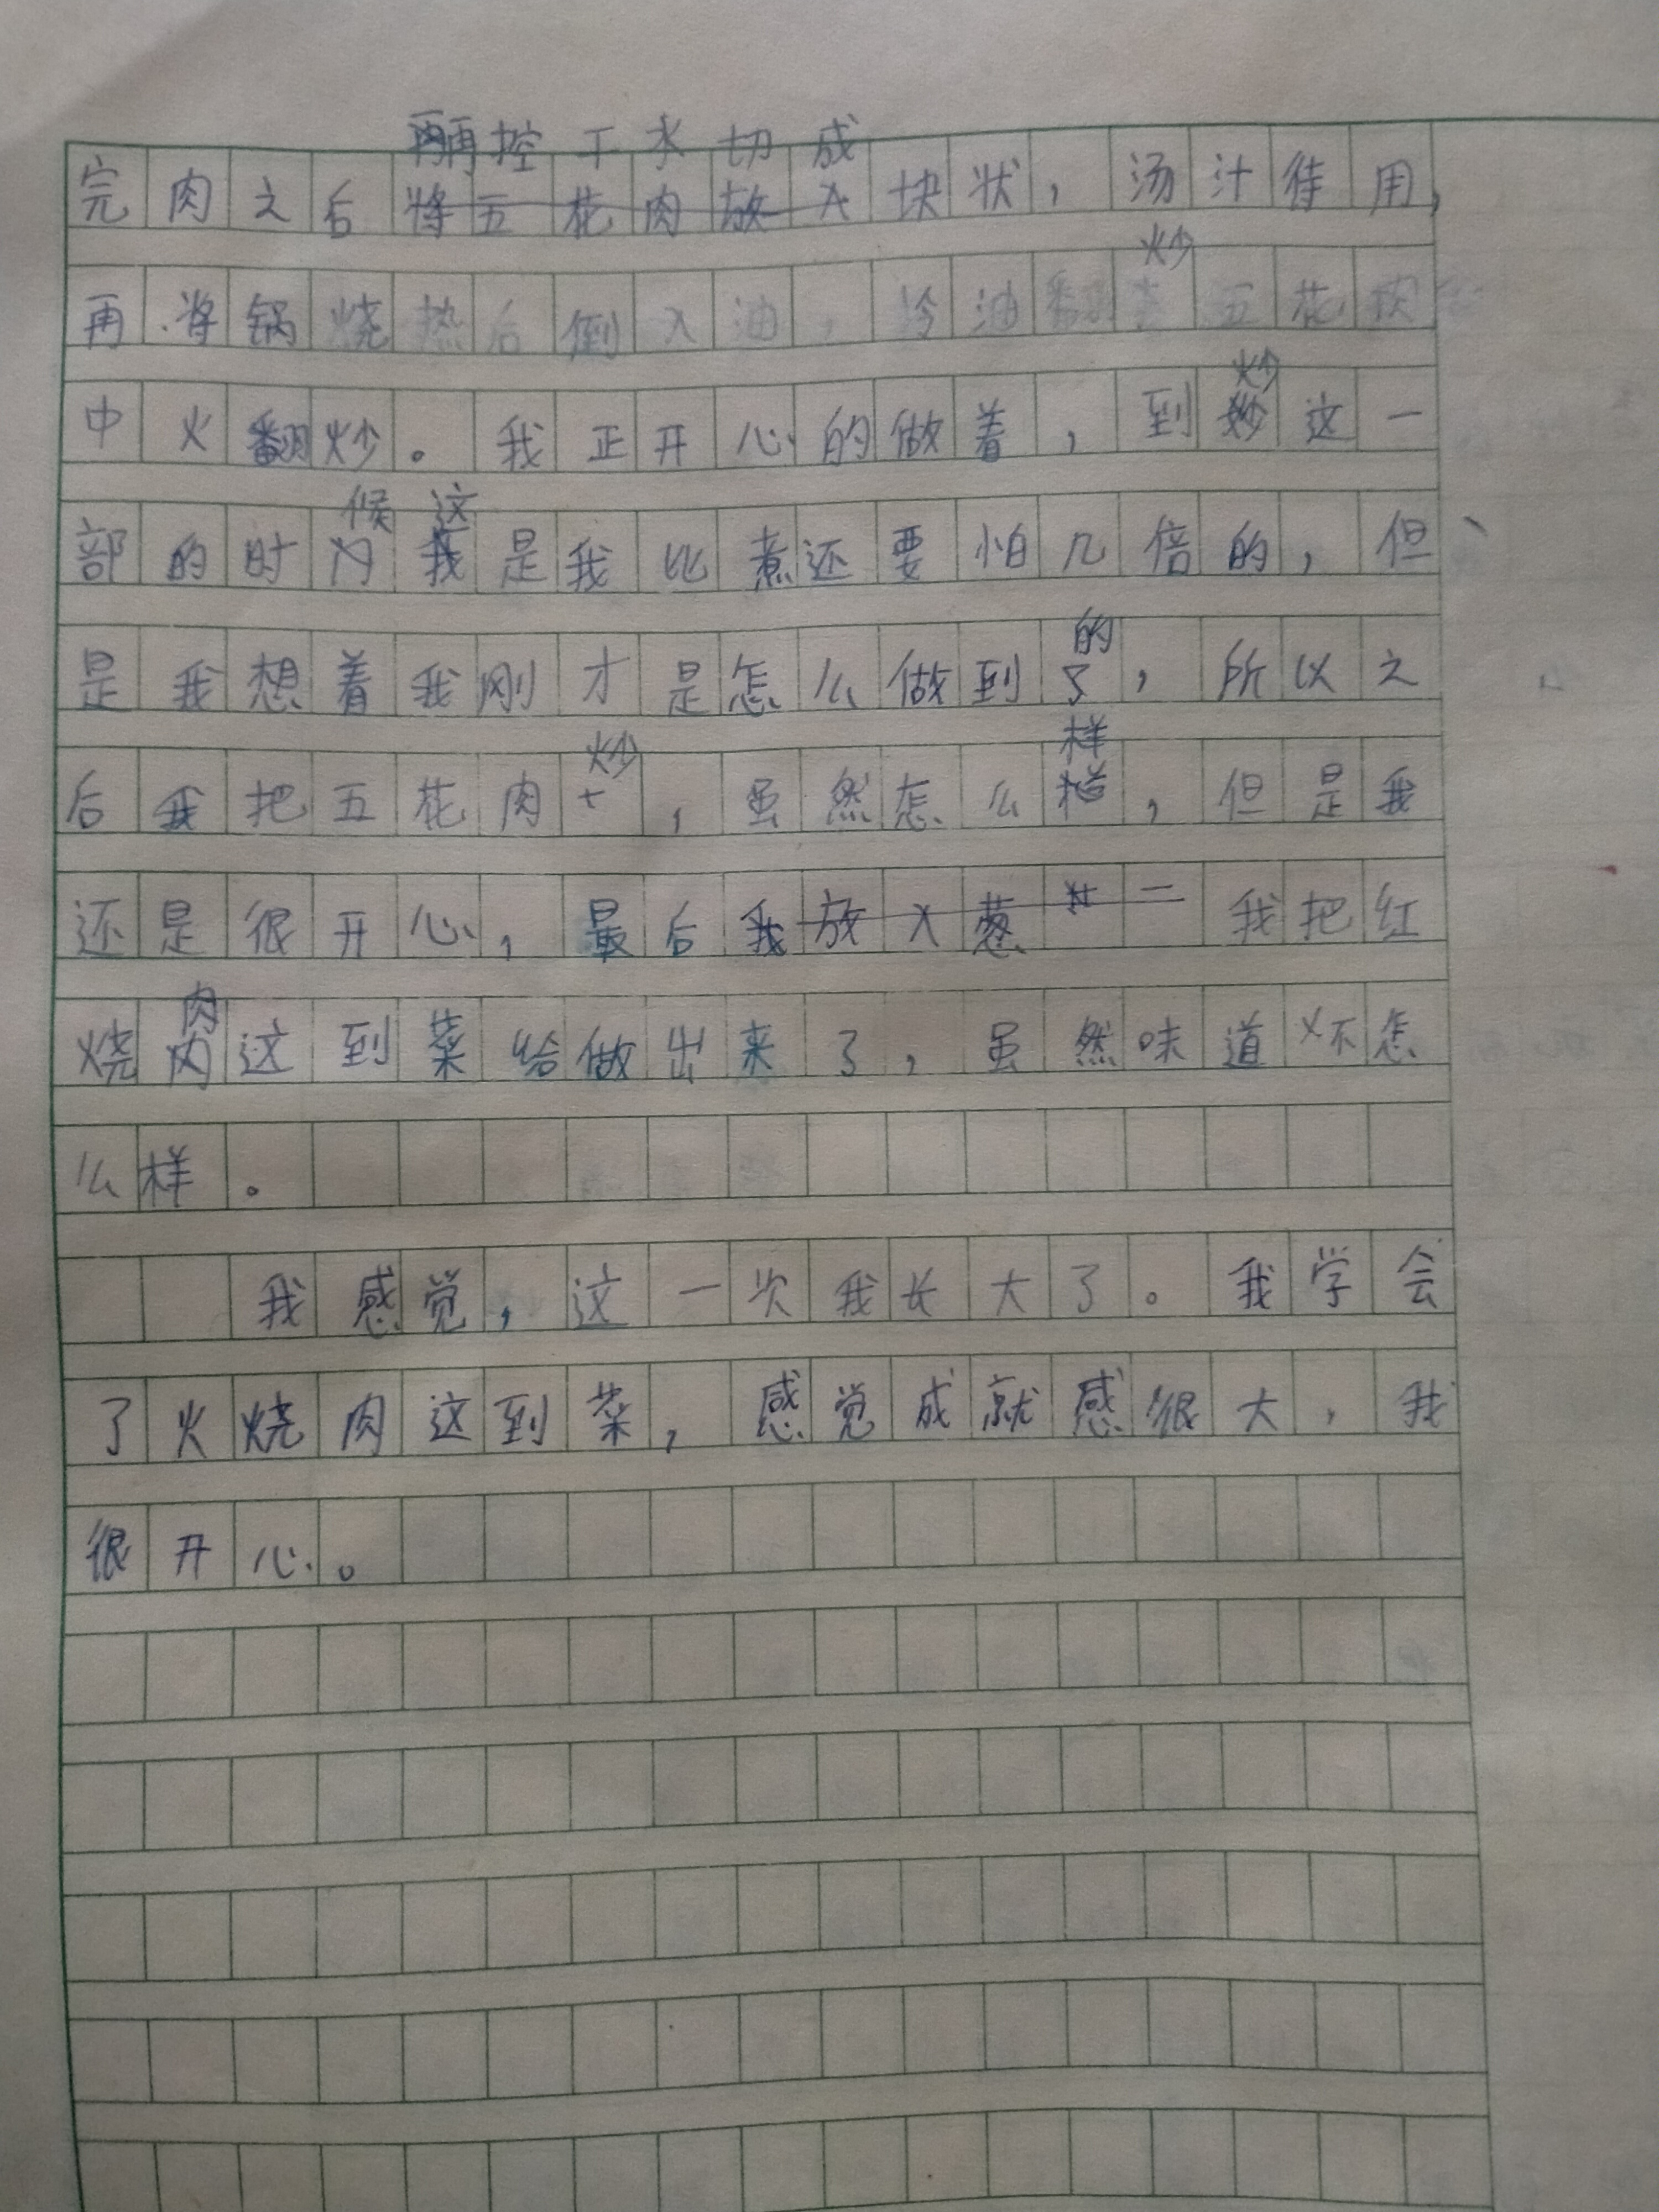 再控干水切成
完肉之后将五花肉放入块状，汤汁待用，
炒
再将锅烧热后倒入油，冷油翻五花
炒
中火翻炒。我正开心的做着，到这一
候这
部的时我是我比煮还要怕几倍的，但
的
是我想着我刚才是怎么做到了，所以之
炒 样
后我把五花肉，虽然怎么，但是我
还是很开心，最后我放入葱我把红
肉
烧肉这到菜给做出来了，虽然味道不怎
么样。
我感觉，这一次我长大了。我学会
了火烧肉这到菜，感觉成就感很大，我
很开心。